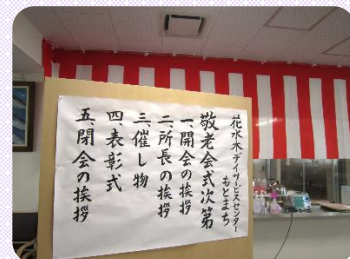 花水木デイサービスセンター
もとまち
敬老会式次第
一、開会の挨拶
二、所長の挨拶
三、催し物
四、表彰式
五、閉会の挨拶